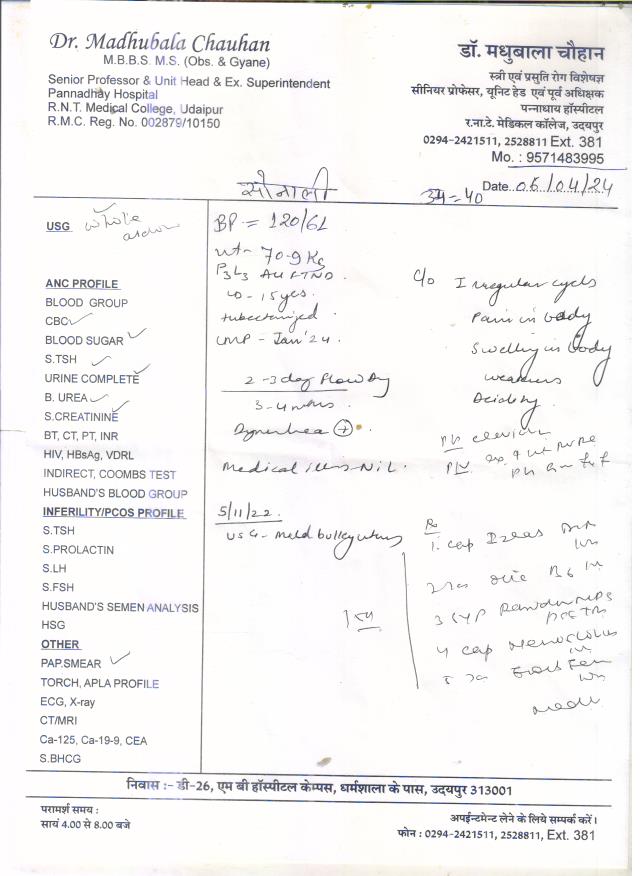 Dr. Madhubala Chauhan
M.B.B.S. M.S. (Obs. & Gyane)
Senior Professor & Unit Head & Ex. Superintendent
Pannadhay Hospital
R.N.T. Medical College, Udaipur
R.M.C. Reg. No. 002879/10150
डॉ. मधुबाला चौहान
स्त्री एवं प्रसुति रोग विशेषज्ञ
सीनियर प्रोफेसर, यूनिट हेड एवं पूर्व अधिक्षक
पन्नाधाय हॉस्पीटल
र.ना.टे. मेडिकल कॉलेज, उदयपुर
0294-2421511, 2528811 Ext. 381
Mo. : 9571483995
सोनाली
Date..05/04/24
USG whole
ANC PROFILE
BLOOD GROUP
CBC
BLOOD SUGAR
S.TSH
URINE COMPLETE
B. UREA
S.CREATININE
BT, CT, PT, INR
HIV, HBsAg, VDRL
INDIRECT, COOMBS TEST
HUSBAND'S BLOOD GROUP
INFERILITY/PCOS PROFILE
S.TSH
S.PROLACTIN
S.LH
S.FSH
HUSBAND'S SEMEN ANALYSIS
HSG
OTHER
PAP.SMEAR
TORCH, APLA PROFILE
ECG, X-ray
CT/MRI
Ca-125, Ca-19-9, CEA
S.BHCG
BP = 120/61
wt - 70.9 Kg
P3L3 All FTND
LD - 15 yes.
tubectomized
LMP - Jan'24
2-3 day flow
3-4 mths.
+
Medical illns Nil.
5/11/22
USG - Mild bulky uterus
C/o Irregular cycls
Pain in body
Swelling in body
weakness
Rx
1. cap
3 syp
4 cap
निवास :- डी-26, एम बी हॉस्पीटल केम्पस, धर्मशाला के पास, उदयपुर 313001
परामर्श समय :
सायं 4.00 से 8.00 बजे
अपईन्टमेन्ट लेने के लिये सम्पर्क करें।
फोन : 0294-2421511, 2528811, Ext. 381